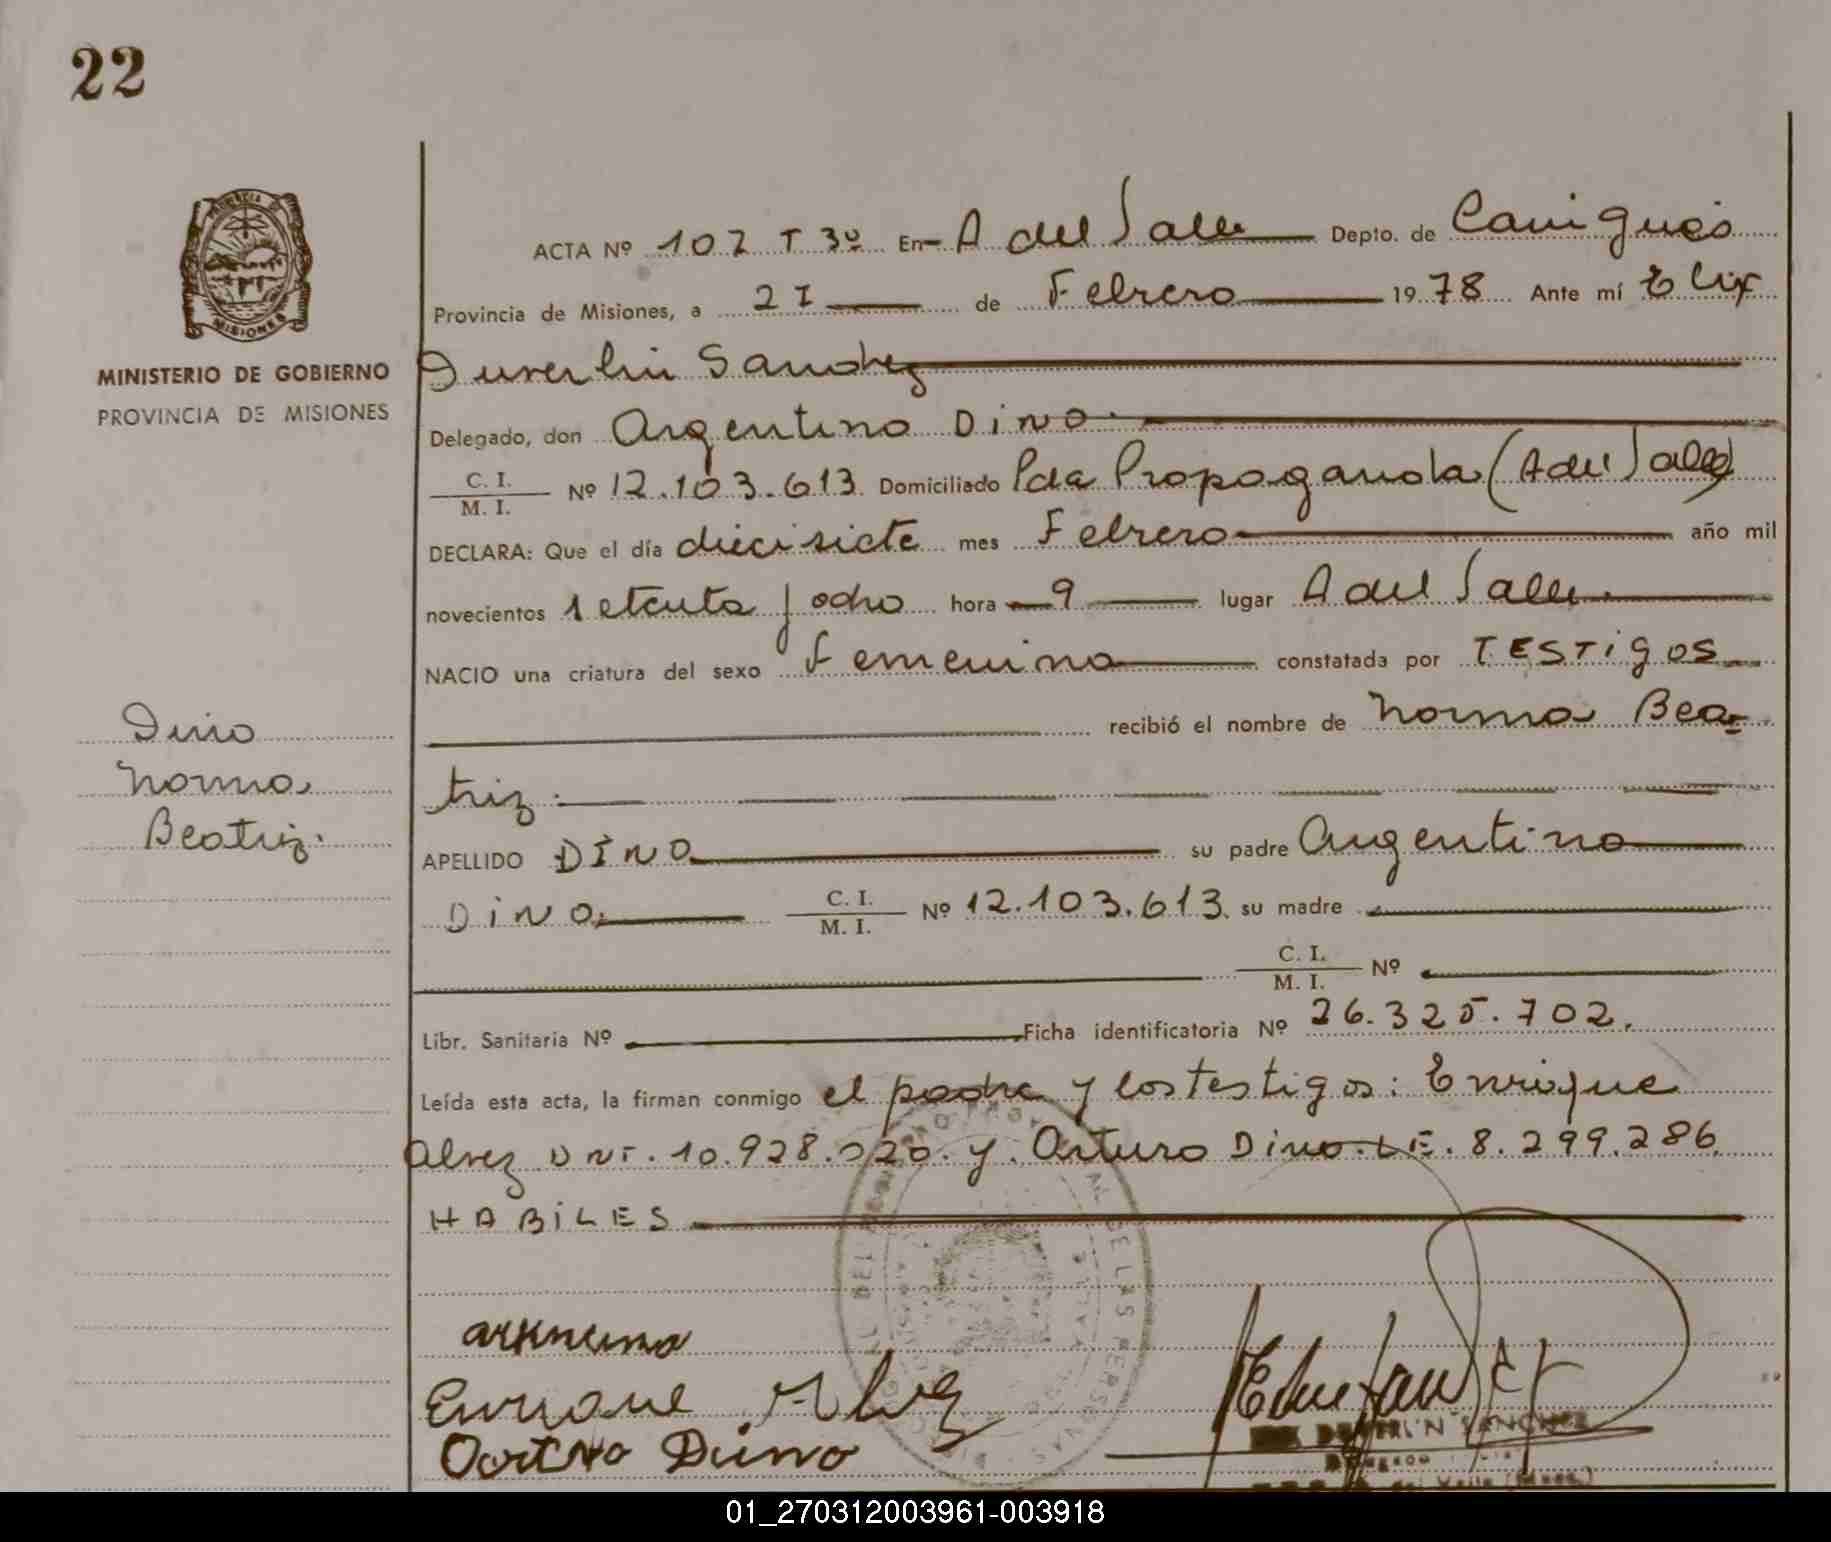 22
ACTA Nº 102 T 3º En A del Valle Depto. de Cainguás
Provincia de Misiones, a 21 de Febrero 1978 Ante mí Elix
Duverlin Sanchez
MINISTERIO DE GOBIERNO
PROVINCIA DE MISIONES
Delegado, don Argentino Dino
C. I.
M. I. Nº 12.103.613 Domiciliado Pda Propaganda (A del Valle)
DECLARA: Que el día diecisiete mes Febrero año mil
novecientos setenta y ocho hora 9 lugar A del Valle
NACIO una criatura del sexo Femenino constatada por TESTIGOS
recibió el nombre de Norma Bea-
triz
Dino
Norma
Beatriz.
APELLIDO DINO su padre Argentino
Dino C. I.
M. I. Nº 12.103.613 su madre
C. I.
M. I. Nº
Libr. Sanitaria Nº Ficha identificatoria Nº 26.325.702.
Leída esta acta, la firman conmigo el padre y los testigos: Enrique
Alvez DNI. 10.928.020. y. Arturo Dino LE. 8.299.286
HABILES
Enrique Alvez
Dino
SANCHEZ
01_270312003961-003918